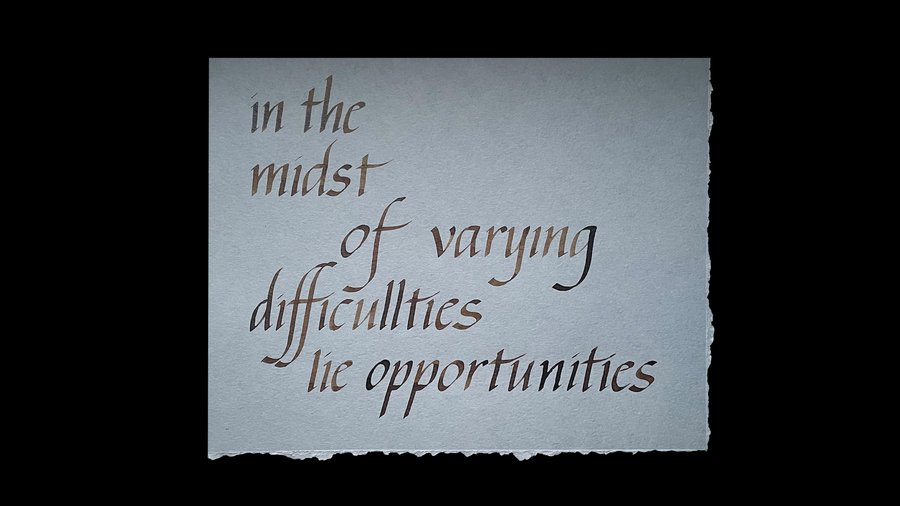 in the
midst
of varying
difficullties
lie opportunities